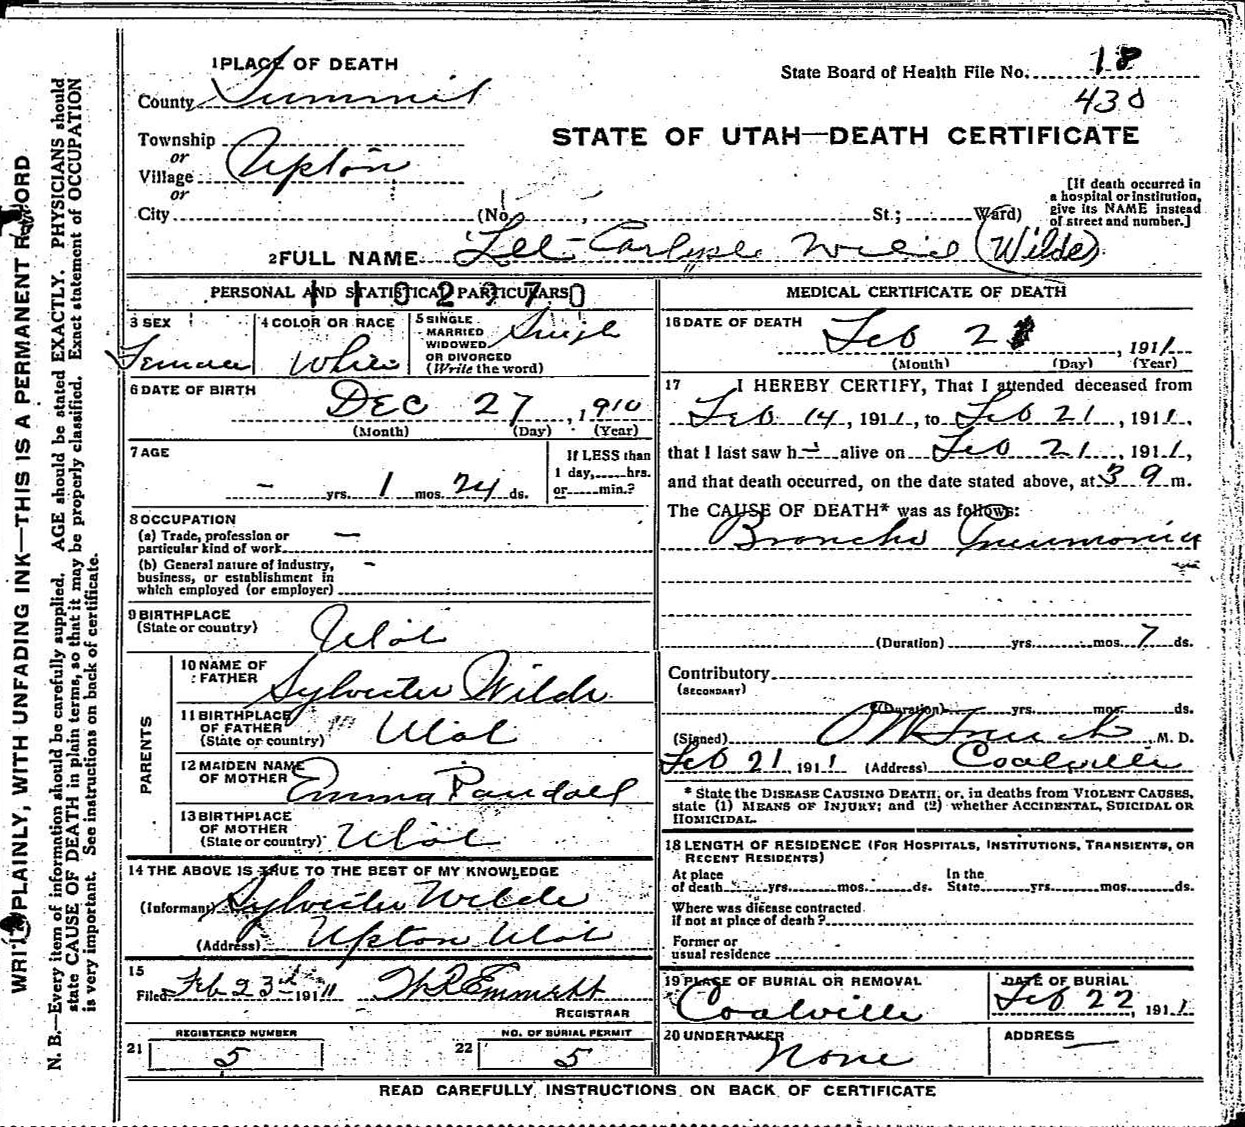 1 PLACE OF DEATH
State Board of Health File No. 18
County Summit
430
STATE OF UTAH—DEATH CERTIFICATE
Township
or
Village Upton
or
City (No. , St.; Ward)
[If death occurred in
a hospital or institution,
give its NAME instead
of street and number.]
2 FULL NAME Carlysle (Wilde)
PERSONAL AND STATISTICAL PARTICULARS
1102970
3 SEX
Female
4 COLOR OR RACE
White
5 SINGLE
MARRIED
WIDOWED
OR DIVORCED
(Write the word)
Single
6 DATE OF BIRTH
Dec 27, 1910
(Month) (Day) (Year)
7 AGE
- yrs. 1 mos. 24 ds.
If LESS than
1 day, hrs.
or min.?
8 OCCUPATION
(a) Trade, profession or
particular kind of work —
(b) General nature of industry,
business, or establishment in
which employed (or employer) -
9 BIRTHPLACE
(State or country) Utah
PARENTS
10 NAME OF
FATHER Sylvester Wilde
11 BIRTHPLACE
OF FATHER
(State or country) Utah
12 MAIDEN NAME
OF MOTHER Emma Randall
13 BIRTHPLACE
OF MOTHER
(State or country) Utah
14 THE ABOVE IS TRUE TO THE BEST OF MY KNOWLEDGE
(Informant) Sylvester Wilde
(Address) Upton Utah
15
Filed Feb 23rd 1911 Emmett
REGISTRAR
REGISTERED NUMBER
21 5
NO. OF BURIAL PERMIT
22 5
MEDICAL CERTIFICATE OF DEATH
16 DATE OF DEATH
Feb 21, 1911
(Month) (Day) (Year)
17 I HEREBY CERTIFY, That I attended deceased from
Feb 14, 1911, to Feb 21, 1911,
that I last saw h alive on Feb 21, 1911,
and that death occurred, on the date stated above, at 3 m.
The CAUSE OF DEATH* was as follows:
Broncho Pneumonia
(Duration) yrs. mos. 7 ds.
Contributory
(SECONDARY)
(Duration) yrs. mos. ds.
(Signed) M. D.
Feb 21 1911 (Address) Coalville
* State the DISEASE CAUSING DEATH, or, in deaths from VIOLENT CAUSES,
state (1) MEANS OF INJURY; and (2) whether ACCIDENTAL, SUICIDAL OR
HOMICIDAL.
18 LENGTH OF RESIDENCE (FOR HOSPITALS, INSTITUTIONS, TRANSIENTS, OR
RECENT RESIDENTS)
At place
of death yrs. mos. ds.
In the
State yrs. mos. ds.
Where was disease contracted
if not at place of death?
Former or
usual residence
19 PLACE OF BURIAL OR REMOVAL
Coalville
DATE OF BURIAL
Feb 22, 1911
20 UNDERTAKER
None
ADDRESS
READ CAREFULLY INSTRUCTIONS ON BACK OF CERTIFICATE
WRITE PLAINLY, WITH UNFADING INK—THIS IS A PERMANENT RECORD
N. B.—Every item of information should be carefully supplied. AGE should be stated EXACTLY. PHYSICIANS should
state CAUSE OF DEATH in plain terms, so that it may be properly classified. Exact statement of OCCUPATION
is very important. See instructions on back of certificate.